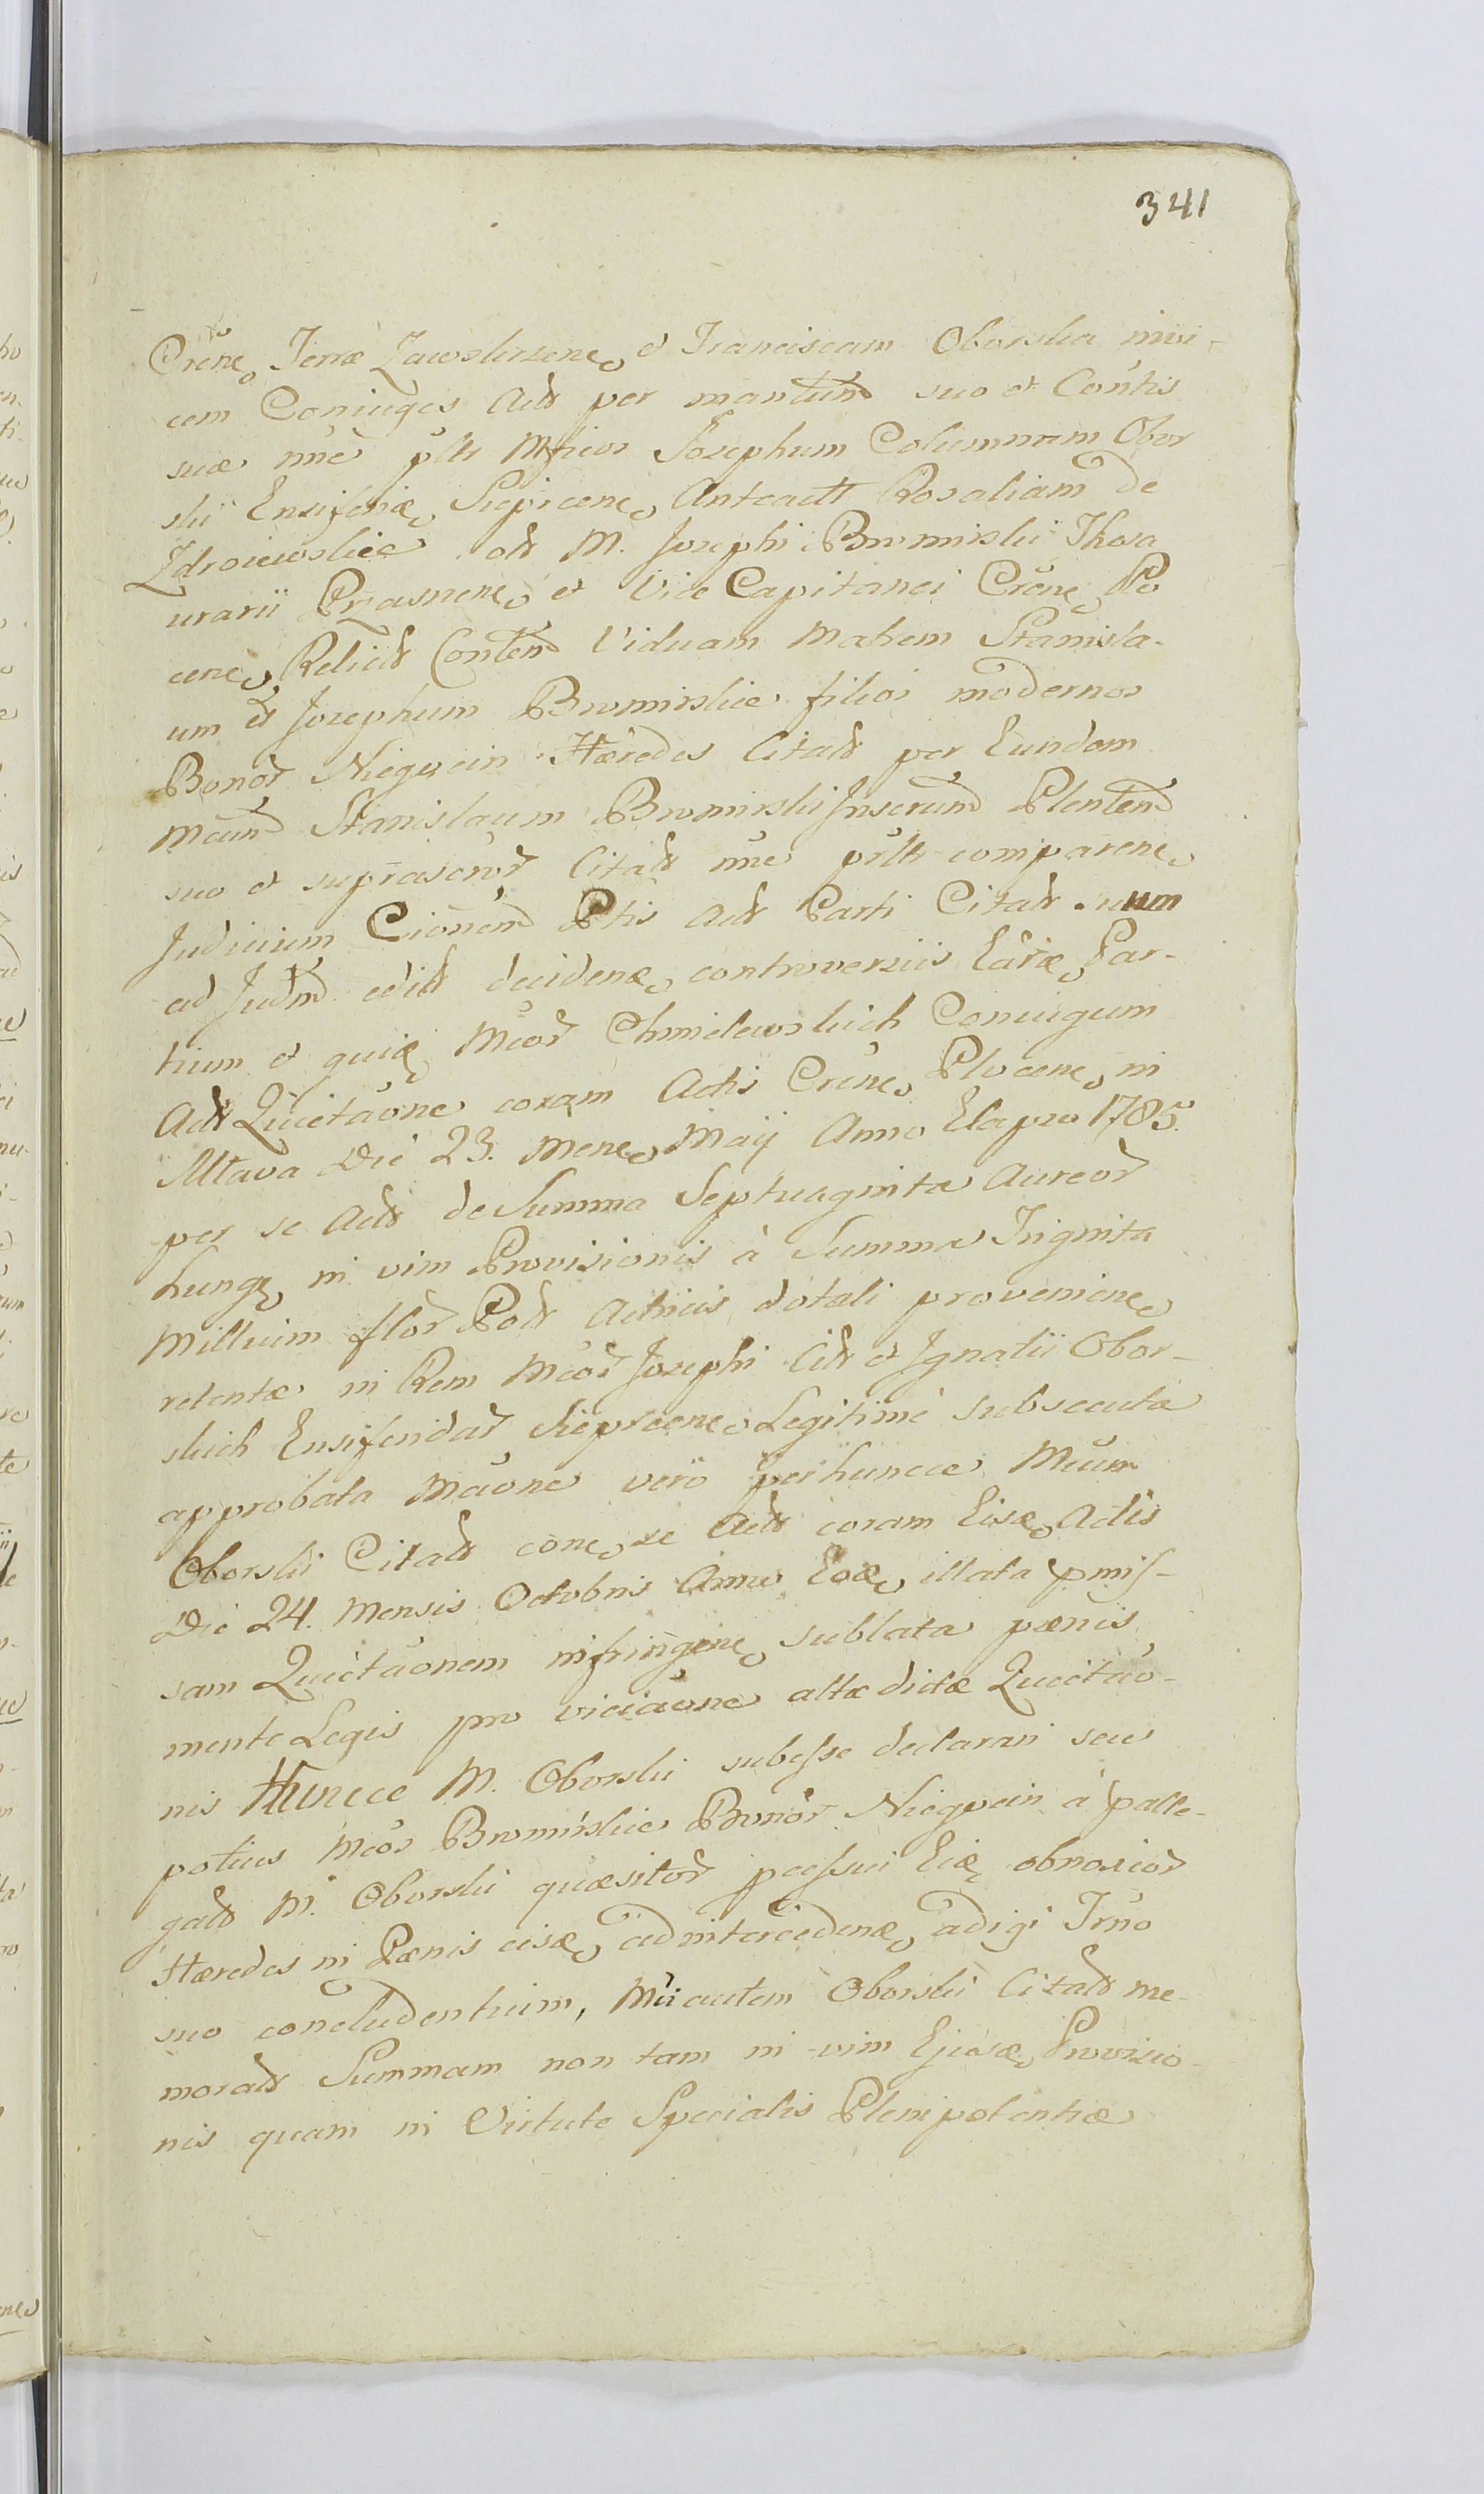 341
Crene Terræ Zawskrzene et Franciscam Oborska invi-
cem Coniuges Act per mantum suo et Contis
suæ nne plts Mficos Josephum Columnam Obor
skii Ensiferiæ Siepicene Anteact Rosaliam de
Zdroiewskie olt M. Josephi Bromirski Thesa
urarii Przasnene et Vice Capitanei Crene Plo
cene Relict Conten Viduam Matrem Stanisla-
um et Josephum Bromirskie filios modernos
Bonor Niegocin Hæredes Citat per Eundem
Mcum Stanislaum Bromirski Plenten
suo et suprascror Citat nne prltr comparene
Judicium Ptis Act Parti Citat suum
ad Judm edit decidenæ controversiis Earæ Par-
tium et quia Mcor Chmielewskich Coniugum
Act Quietaone coram Actis Crene Plocene in
Mlava Die 23. Mene Maij Anno Elapso 1785.
per se Act de Summa Septuaginta Aureor
hung in vim Provisionis à Summa Triginta
Millium flor Pol Actricis dotali proveniene
retentæ in Rem Mcor Josephi Cit et Ignatii Obor-
skich Ensiferidar Siepicene Legitimè subsecuta
approbata Maone verò per huncce Mcum
Oborski Citat cone se Act coram Eisæ Actis
Die 24. Mensis Octobris Anno Eoæ illata pmis-
sam Quietaonem infringene sublata pænis
mente Legis pro viciaone altæ dictæ Quietao-
nis Huncce M. Oborski subesse declarari seu
potius Mcos Bromirskie Bonor Niegocin à
M. Oborski quæsitor obnoxior
Hæredes in Pænis eisæ ad intercedenæ adigi Trno
suo concludentium, Mci autem Oborski Citat me-
morat Summam non tam in vim Ejusæ Provisio-
nis quam in Virtute Specialis Plenipotentiæ